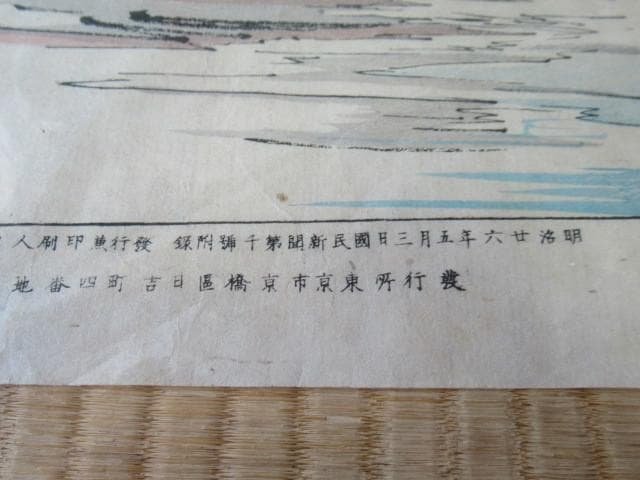 明治廿六年五月三日國民新聞第千號附録 發行兼印刷人
發行所東京市京橋區日吉町四番地